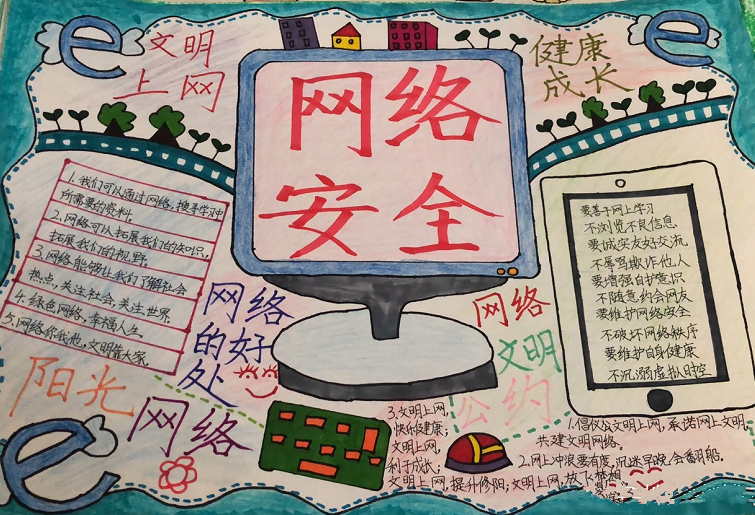 e
文明
上网
网络
安全
健康
成长
e
1.我们可以通过网络，搜寻学习中
所需要的资料
2.网络可以拓展我们的知识，
拓展我们的视野
3.网络能够让我们了解社会
热点，关注社会，关注世界.
4.绿色网络，幸福人生.
5.网络你我他，文明靠大家.
网络
的好
处
阳光
网络
e
网络
文明
公约
要善于网上学习
不浏览不良信息
要诚实友好交流
不辱骂欺诈他人
要增强自护意识
不随意约会网友
要维护网络安全
不破坏网络秩序
要维护自身健康
不沉溺虚拟时空
1.倡仪公文明上网，承诺网上文明，
共建文明网络。
2.网上冲浪要有度，沉迷早晚会翻船。
3.文明上网，
快乐健康；
文明上网，
利于成长；
文明上网，提升修阳；文明上网，放飞梦想